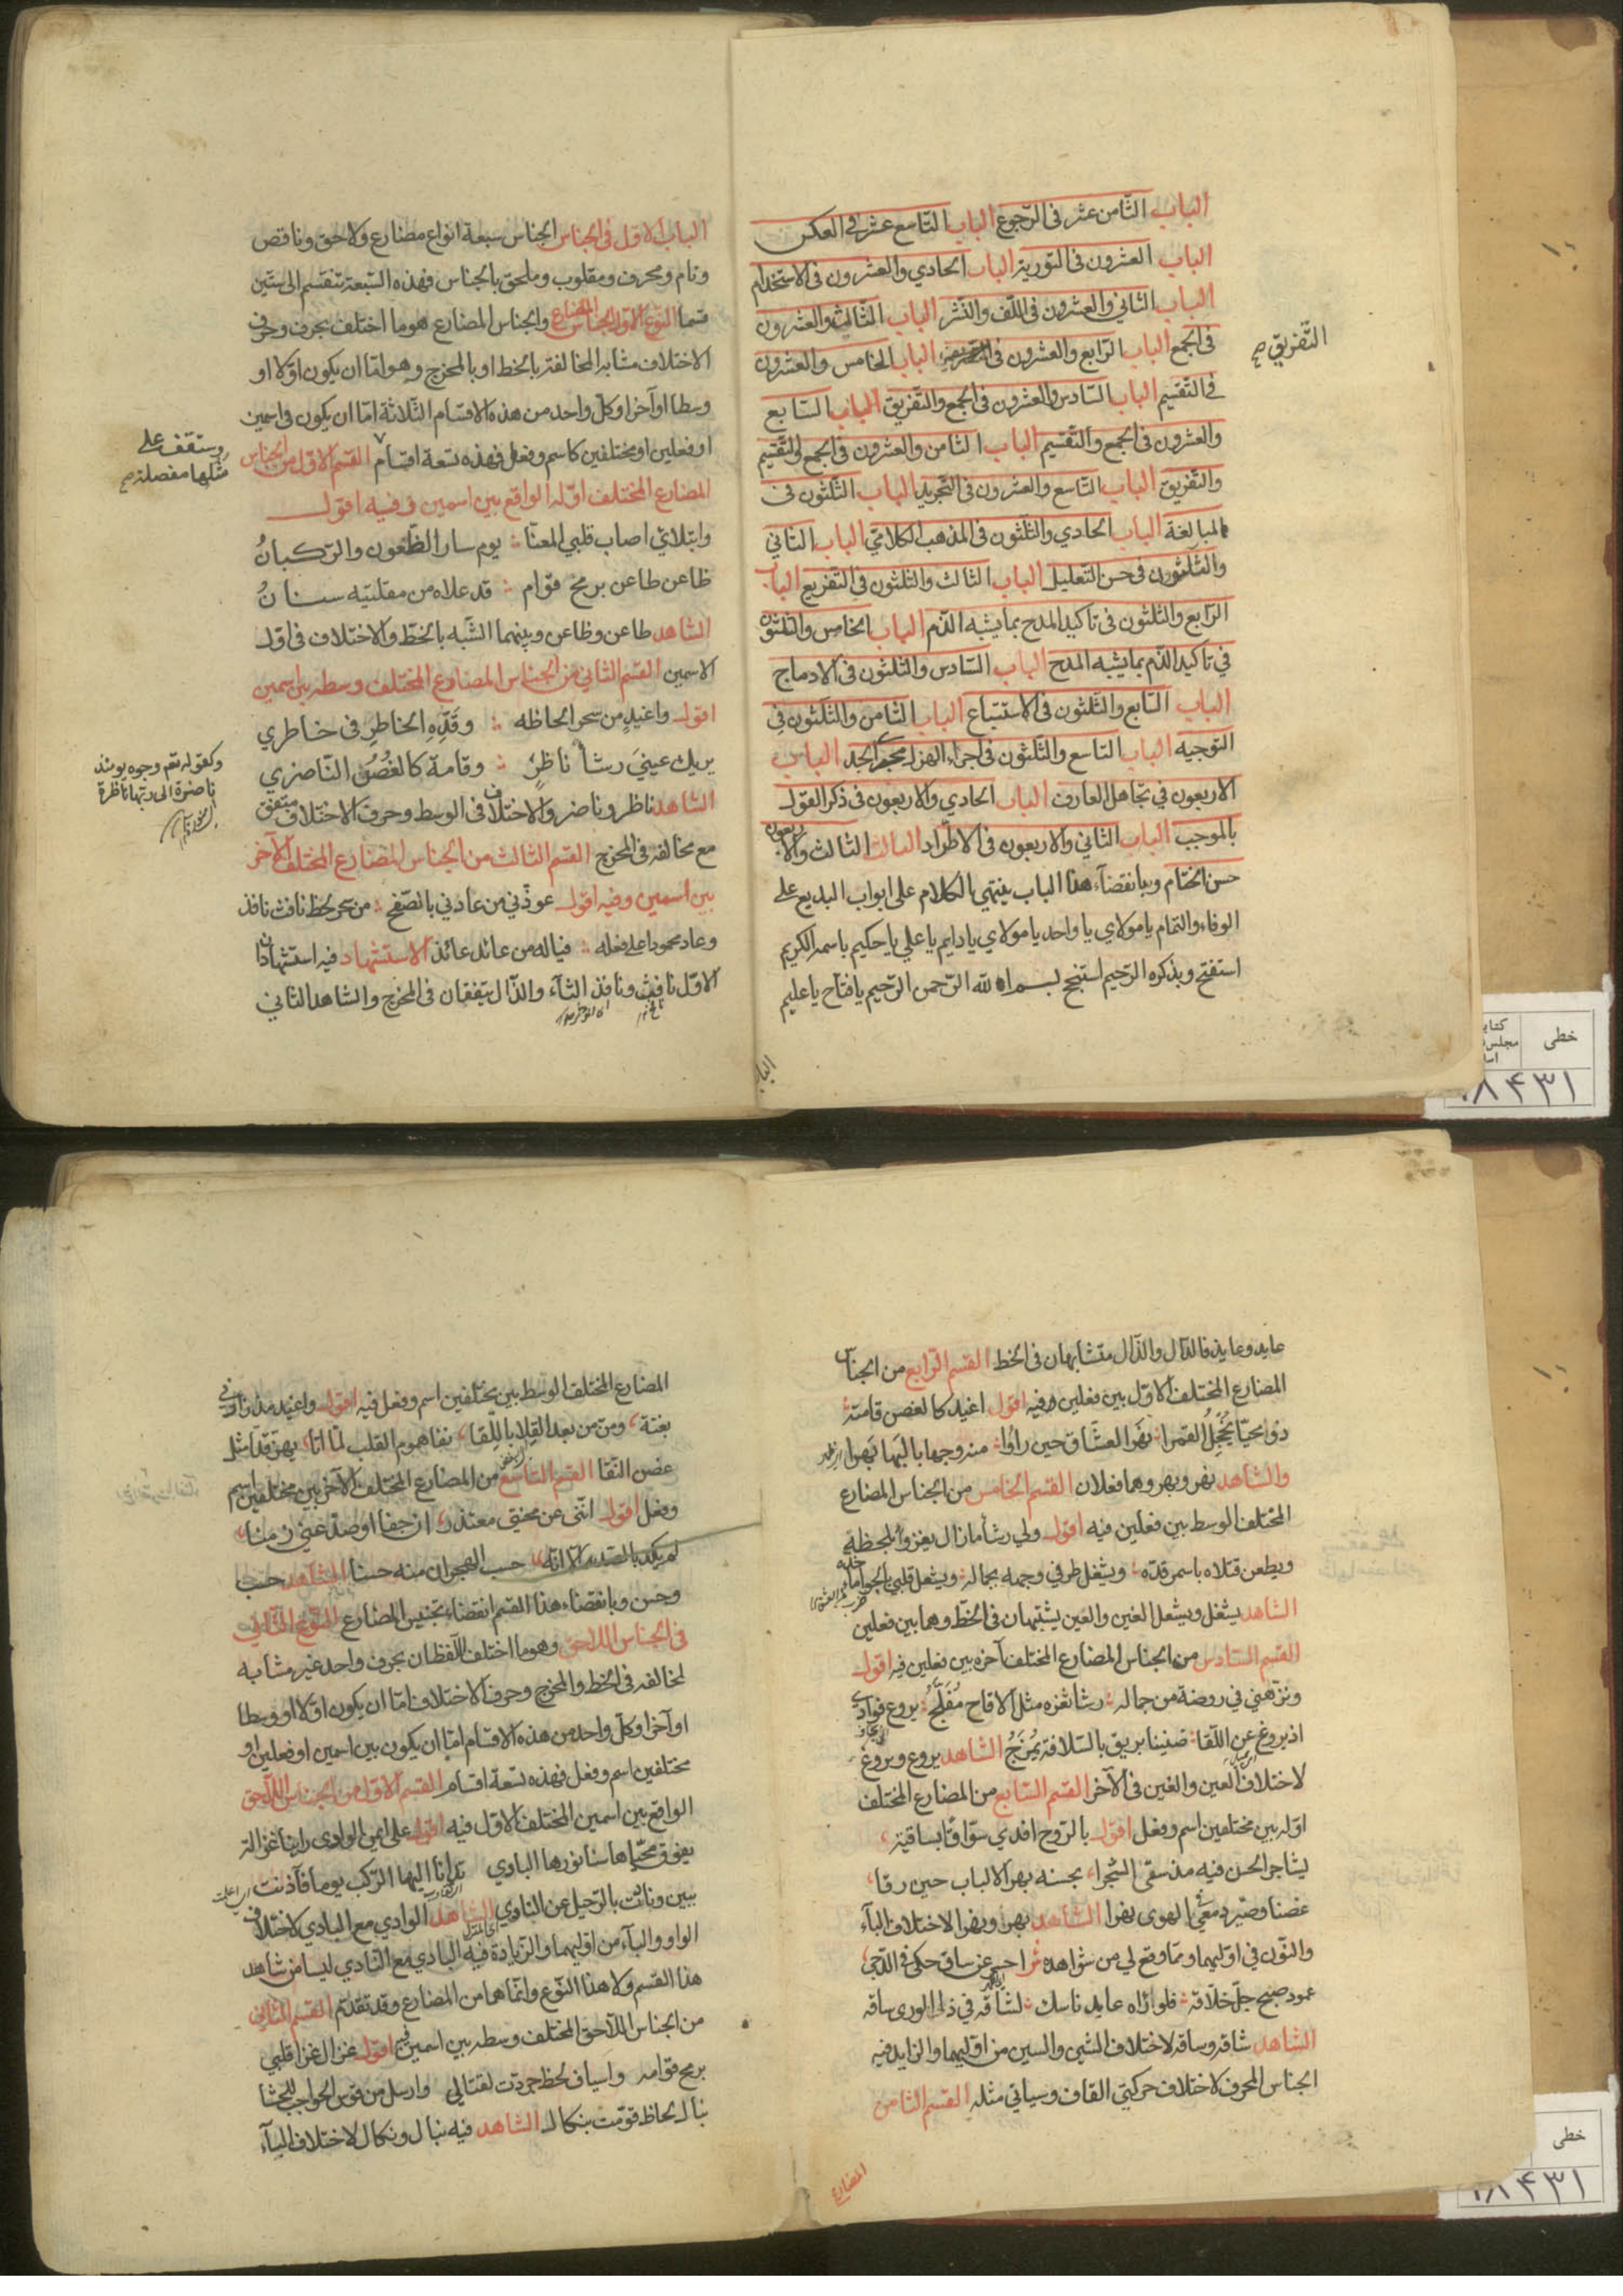 الباب الثامن عشر في الرجوع الباب التاسع عشر في العكس
الباب العشرون في التورية الباب الحادي والعشرون في الاستخدام
الباب الثاني والعشرون في اللف والنشر الباب الثالث والعشرون
في الجمع الباب الرابع والعشرون في الباب الخامس والعشرون
التفريق صح
في التقسيم الباب السادس والعشرون في الجمع والتفريق الباب السابع
والعشرون في الجمع والتقسيم الباب الثامن والعشرون في الجمع والتقسيم
والتفريق الباب التاسع والعشرون في التجريد الباب الثلثون في
المبالغة الباب الحادي والثلثون في المذهب الكلامي الباب الثاني
والثلثون في حسن التعليل الباب الثالث والثلثون في التفريع الباب
الرابع والثلثون في تاكيد المدح بما يشبه الذم الباب الخامس والثلثون
في تاكيد الذم بما يشبه المدح الباب السادس والثلثون في الادماج
الباب السابع والثلثون في الاستتباع الباب الثامن والثلثون في
التوجيه الباب التاسع والثلثون في اجراء الهزل مجرى الجد الباب
الاربعون في تجاهل العارف الباب الحادي والاربعون في ذكر القول
بالموجب الباب الثاني والاربعون في الاطراد الباب الثالث والاربعون
حسن الختام وبانقضاء هذا الباب ينتهي الكلام على ابواب البديع على
الوفاء والتمام يا مولاي يا واحد يا مولاي يا دايم يا علي يا حكيم باسمه الكريم
استفتح وبذكره الرحيم استنجح بسم الله الرحمن الرحيم يا فتاح يا عليم
الباب
الباب الاول في الجناس الجناس سبعة انواع مضارع ولاحق وناقص
وتام ومحرف ومقلوب وملحق بالجناس فهذه السبعة تنقسم الى ستين
قسما النوع الاول الجناس المضارع والجناس المضارع هو ما اختلف بحرف وحرف
الاختلاف مشابه المخالفة بالخط او بالمخرج وهو اما ان يكون اولا او
وسطا او آخرا وكل واحد من هذه الاقسام الثلاثة اما ان يكون في اسمين
او فعلين او مختلفين كاسم وفعل فهذه تسعة اقسام القسم الاول من الجناس
وستقف على
مثلها مفصلة صح
المضارع المختلف اوله الواقع بين اسمين وفيه اقول
وابتلائي اصاب قلبي المعنا يوم سار الظعون والركبان
ظاعن طاعن برمح قوام قد علاه من مقلتيه سنان
الشاهد طاعن وظاعن وبينهما الشبه بالخط والاختلاف في اول
الاسمين القسم الثاني من الجناس المضارع المختلف وسطه بين اسمين
اقول واغيد من سحر الحاظه وقده الخاطر في خاطري
يريك عيني رشأ ناظر وقامة كالغصن الناضري
وكقوله تعم وجوه يومئذ
ناضرة الى ربها ناظرة
الشاهد ناظر وناضر والاختلاف في الوسط وحرف الاختلاف متفق
مع مخالفه في المخرج القسم الثالث من الجناس المضارع المختلف الآخر
بين اسمين وفيه اقول عوذني من عادني بالصفح من سحر لحظ نافث نافذ
وعاد محمودا على فعله فياله من عائد عائذ الاستشهاد فيه استشهادان
الاول نافث ونافذ الثاء والذال يتفقان في المخرج والشاهد الثاني
عايد وعايذ فالدال والذال متشابهان في الخط القسم الرابع من الجناس
المضارع المختلف الاول بين فعلين وفيه اقول اغيد كالغصن قامته
ذو محيا يخجل القمرا نهر العشاق حين راوا من وجهها باليها بهرا
والشاهد نهر وبهر وهما فعلان القسم الخامس من الجناس المضارع
المختلف الوسط بين فعلين فيه اقول ولي رشأ ما زال يغزو بلحظه
ويطعن قتلاه باسمر قده ويشغل طرفي وجهه بجماله ويشعل قلبي
الشاهد يشغل ويشعل الغين والعين يشتبهان في الخط وهما بين فعلين
القسم السادس من الجناس المضارع المختلف آخره بين فعلين فيه اقول
ونزهني في روضة من جماله رشا ثغره مثل الاقاح مفلج يروع فوادي
اذ يروغ عن اللقا ضنينا بريق بالسلافة يمزج الشاهد يروع ويروغ
لاختلاف العين والغين في الآخر القسم السابع من المضارع المختلف
اوله بين مختلفين اسم وفعل اقول بالروح افدي سواقا بساقية
ليشاجر الحسن فيه مذ سقى الشجرا بحسنه بهر الالباب حين رقا
غصنا وصير دمعي الهوى نهرا الشاهد بهر ونهر الاختلاف الباء
والنون في اوليهما ومما وقع لي من شواهده احسر عن ساق حكى في الدجى
عمود صبح جل خلاقه فلو راه عابد ناسك لشاقه في ذا الورى ساقه
الشاهد شاقه وساقه لاختلاف الشين والسين من اوليهما والزايد فيه
الجناس المحرف لاختلاف حركتي القاف وسياتي مثله القسم الثامن
المضارع
المضارع المختلف الوسط بين مختلفين اسم وفعل فيه اقول واغيد مذ زارني
بغتة ومن من بعد القلا باللقا نفا هموم القلب لما اتا يهز قدا مثل
غصن النقا القسم التاسع من المضارع المختلف الآخر بين مختلفين اسم
وفعل اقول انني عن محنتي معتذر ان جفا او صد عني زمنا
لم يكد بالصد الا انه حسب الهجران منه حسنا الشاهد حسب
وحسن وبانقضاء هذا القسم انقضاء تجنيس المضارع النوع الثاني
في الجناس اللاحق وهو ما اختلف اللفظان بحرف واحد غير مشابه
لمخالفه في الخط والمخرج وحرف الاختلاف اما ان يكون اولا او وسطا
او آخرا وكل واحد من هذه الاقسام اما ان يكون بين اسمين او فعلين او
مختلفين اسم وفعل فهذه تسعة اقسام القسم الاول من الجناس اللاحق
الواقع بين اسمين المختلف الاول فيه اقول على ايمن الوادي راينا غزالة
يفوق محياها سنا نورها البادي الركب يوما فآذنت
ببين ونادت بالرحيل عن النادي الشاهد الوادي مع البادي لاختلاف
الواو والباء من اوليهما والزيادة فيه البادي مع النادي ليسا من شاهد
هذا القسم ولا هذا النوع وانما هما من المضارع وقد تقدم القسم الثاني
من الجناس اللاحق المختلف وسطه بين اسمين فيه اقول غزال غزا قلبي
برمح قوامه واسياف لحظ جردت لقتالي وارسل من قوس الحواجب للحشا
نبال لحاظ قومت بنكال الشاهد فيه نبال ونكال لاختلاف الباء
خطى
۸۴۳۱